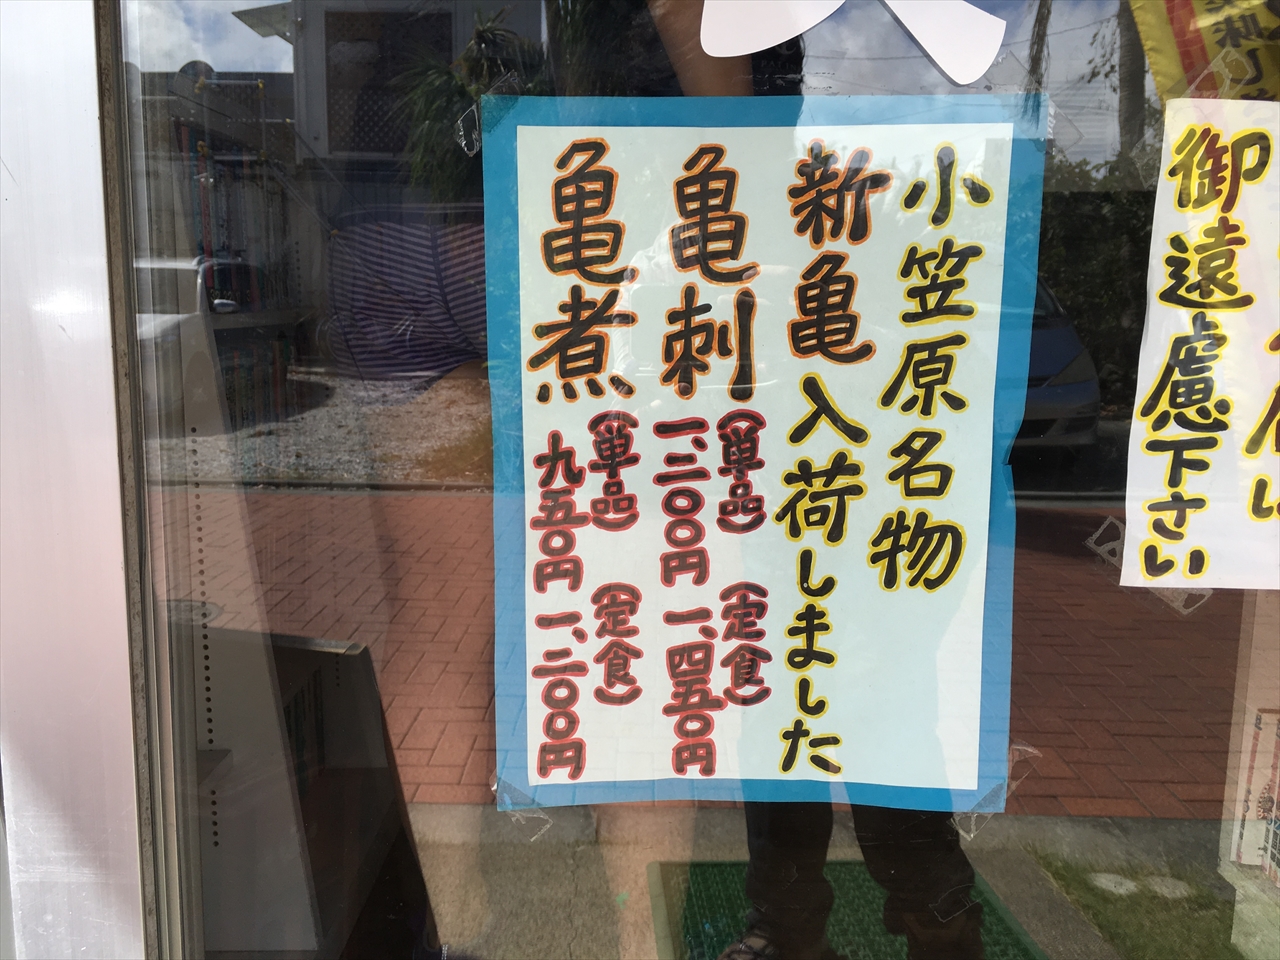 御遠慮下さい
小笠原名物
新亀入荷しました
亀刺
(単品) (定食)
一、三〇〇円 一、四五〇円
亀煮
(単品) (定食)
九五〇円 一、二〇〇円